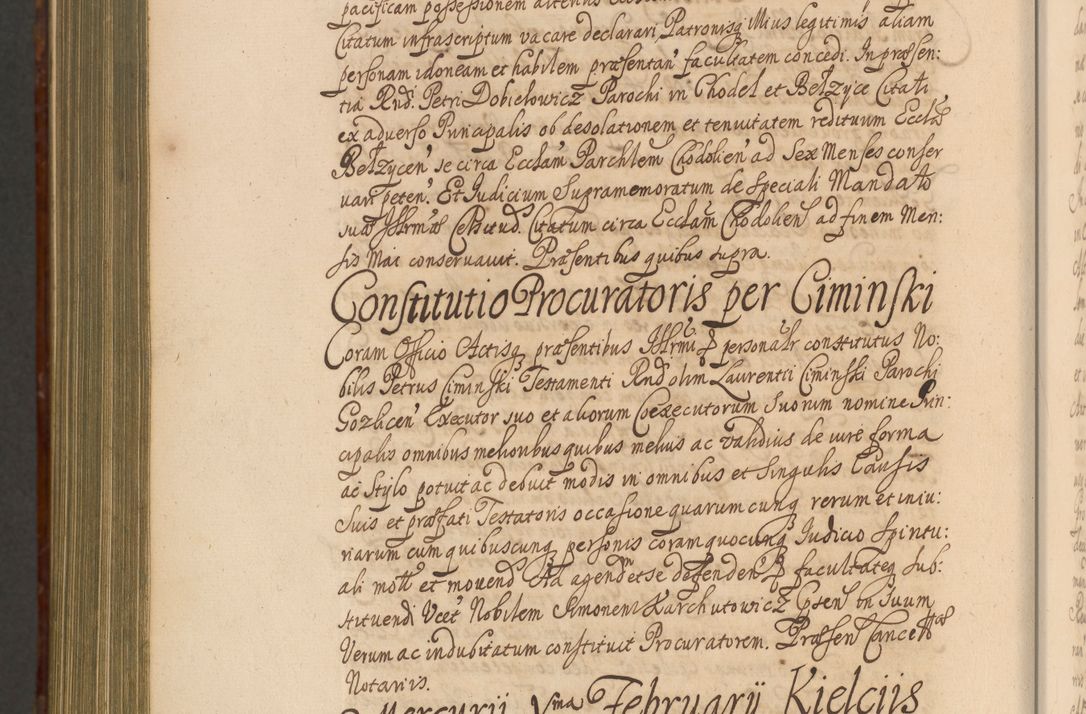 pacificam possessionem alterius
Citatum infrascriptum vacare declarari, Patronisq illius legitimis aliam
personam idoneam et habilem præsentan' facultatem concedi. In præsen:
tia Rnd. Petri Dobielowicz Parochi in Chodel et Bełzyce Citati
ex adverso Principalis ob desolationem et tenuitatem redituum Eccłæ
Bełzycen' se circa Eccłam Parchlem Chodolien' ad Sex Menses conser
vari peten'. Et Judicium Supramemoratum de speciali Mandato
suæ Illrmæ Celsitud. Citatum circa Eccłam Chodolien' ad finem Men:
sis Mai conservavit. Præsentibus quibus supra.
Constitutio Procuratoris per Ciminski
Coram Officio Actisq præsentibus Illrmi personalr constitutus No:
bilis Petrus Ciminski Testamenti Rnd olim Laurentii Ciminski Parochi
Gozlicen' Executor suo et aliorum Coexecutorum Suorum nomine Prin:
cipalis omnibus melioribus quibus melius ac validius de iure forma
ac stylo potuit ac debuit modis in omnibus et singulis Causis
suis et præfati Testatoris occasione quarumcunq rerum et iniu:
riarum cum quibuscunq personis coram quocunq Judicio spiritu:
ali mott et movend Ad agendm et se defenden facultateq sub:
stituendi Vcet Nobilem Simonem Karchutowicz Ipsen' tn Suum
Verum ac indubitatum constituit Procuratorem. Præsen' Cancelltæ
Notariis.
Mercurij Vma Februarij Kielciis